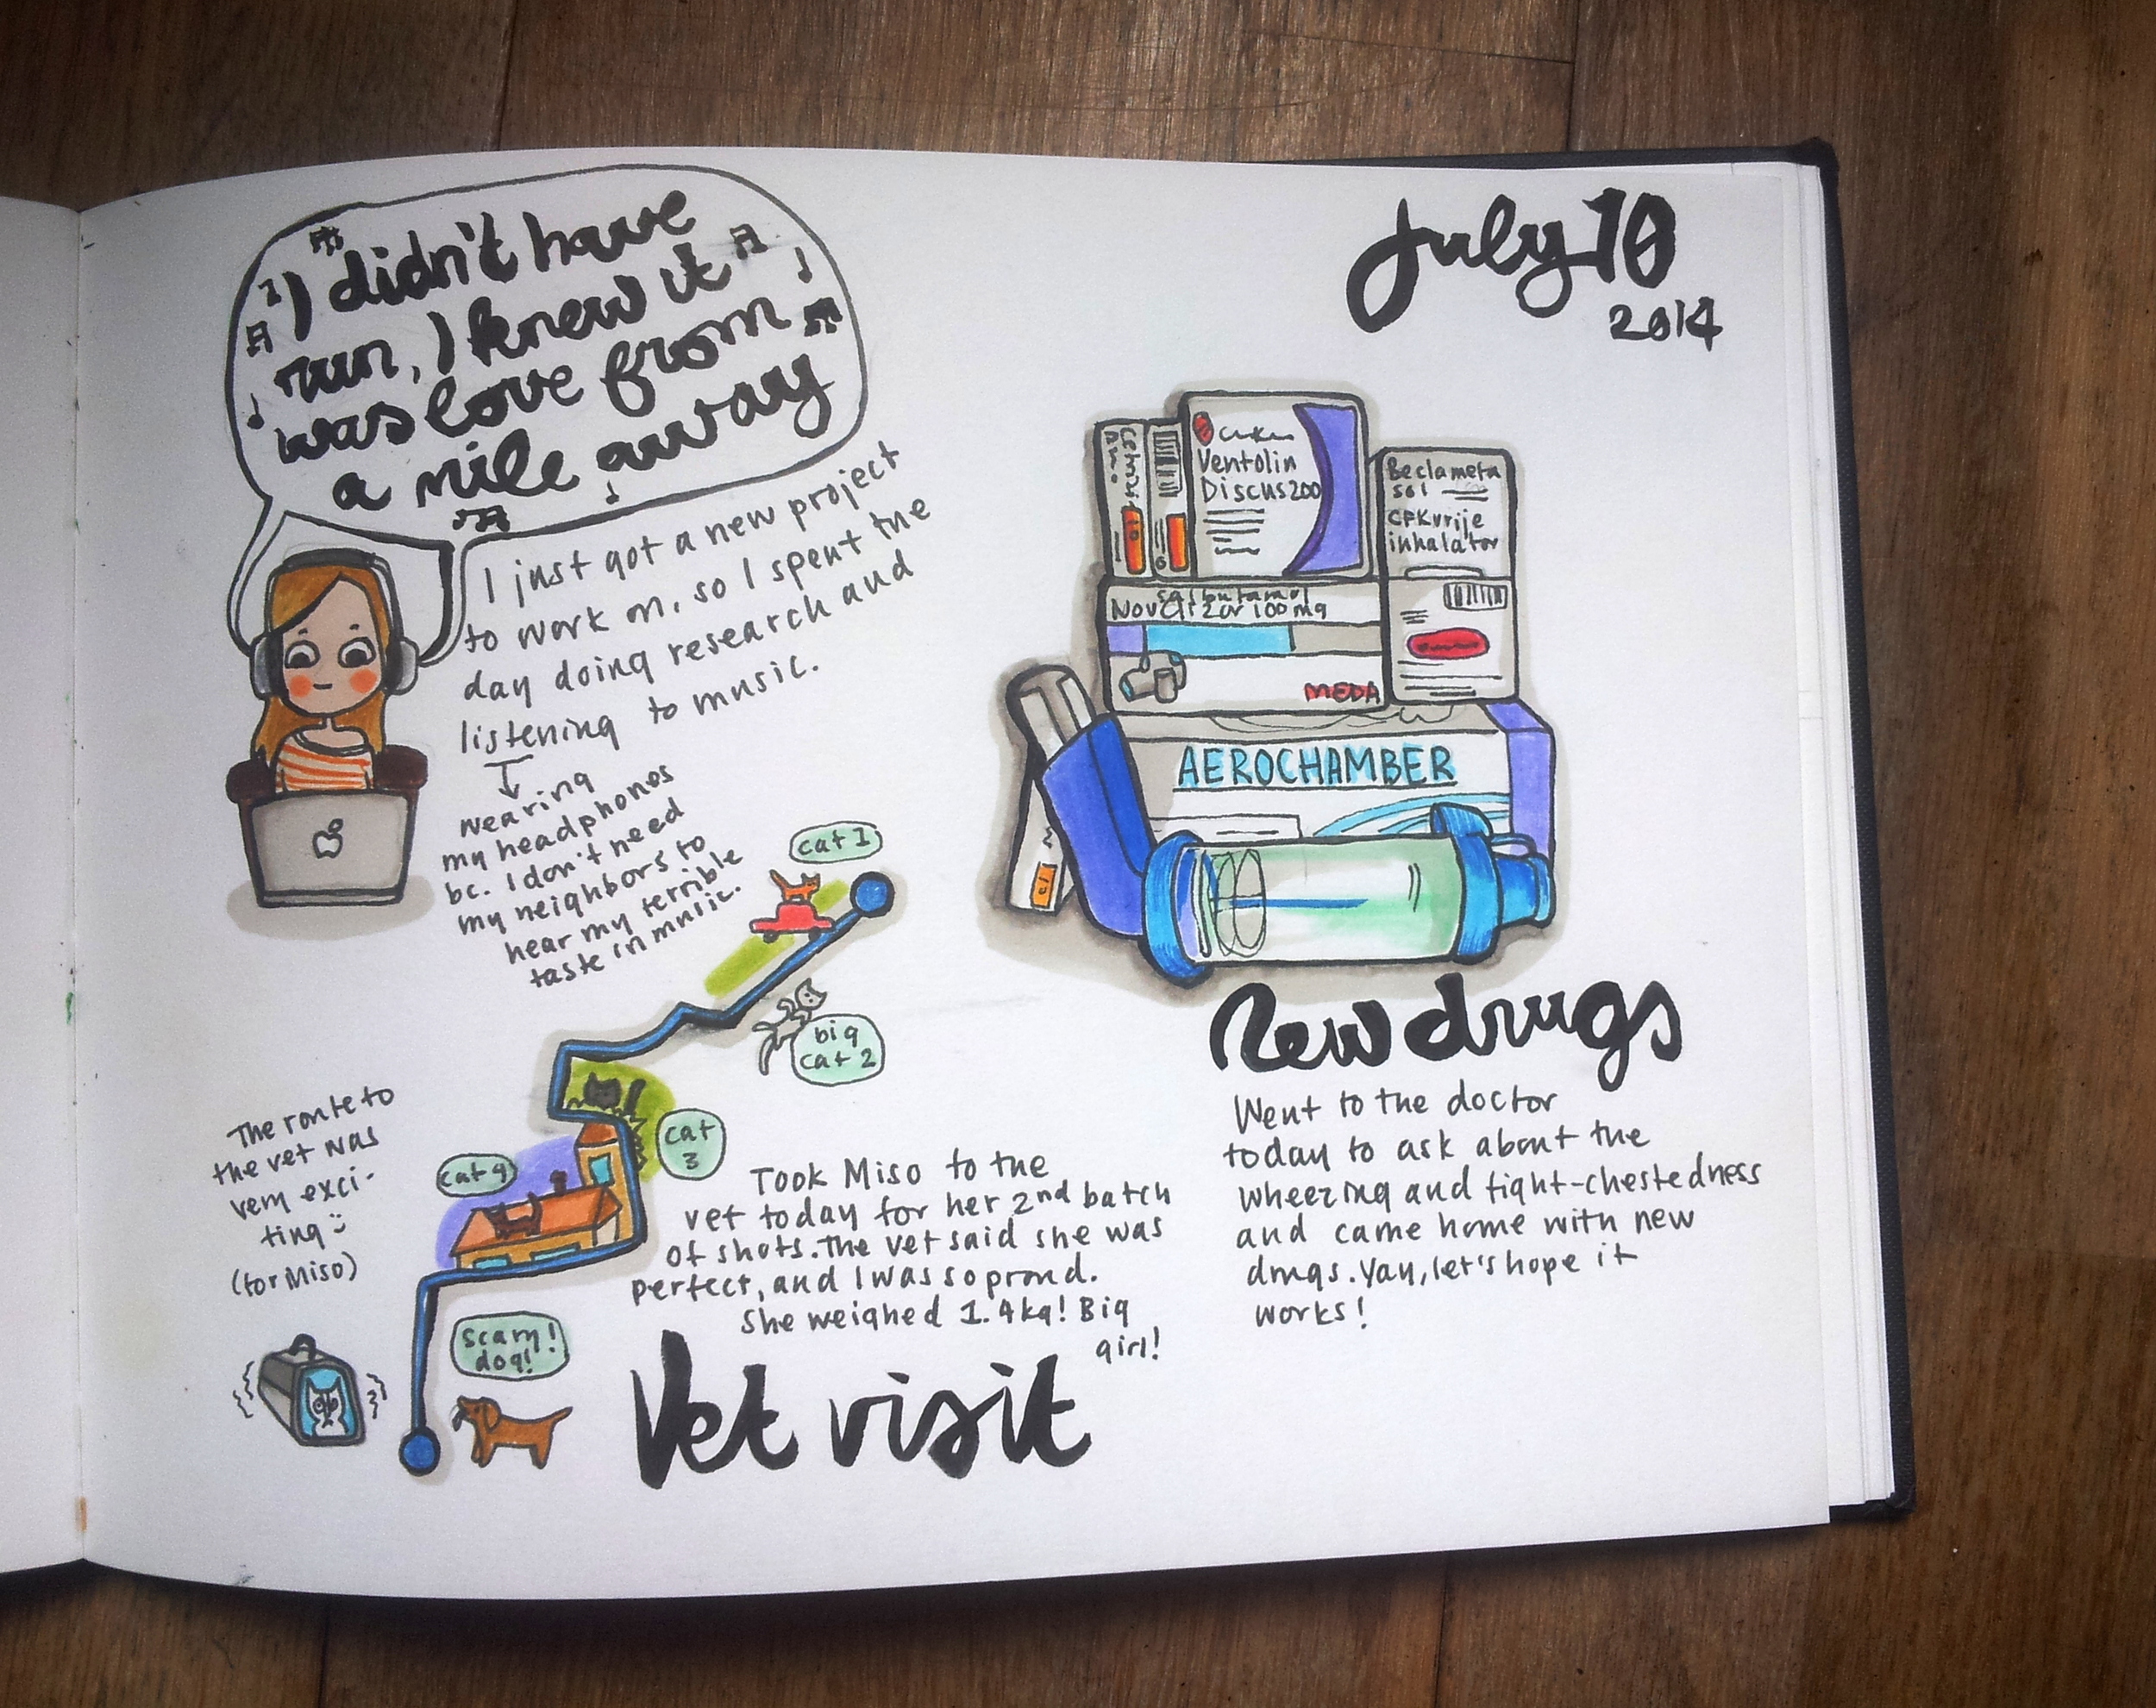 I didn't have
run, I knew it
was love from
a mile away
July 10
2014
I just got a new project
to work on, so I spent the
day doing research and
listening to music.
wearing
my headphones
bc. I don't need
my neighbors to
hear my terrible
taste in music.
Ventolin
Discus 200
Beclameta
sol
CFK vrije
inhalator
salbutamol
Novolizer 100 mg
MEDA
AEROCHAMBER
New drugs
Went to the doctor
today to ask about the
wheezing and tight-chestedness
and came home with new
drugs. Yay, let's hope it
works!
cat 1
big
cat 2
cat
3
cat 4
scary!
dog!
The route to
the vet was
very exci-
ting :)
(for Miso)
Took Miso to the
vet today for her 2nd batch
of shots. The vet said she was
perfect, and I was so proud.
She weighed 1.4kg! Big
girl!
Vet visit